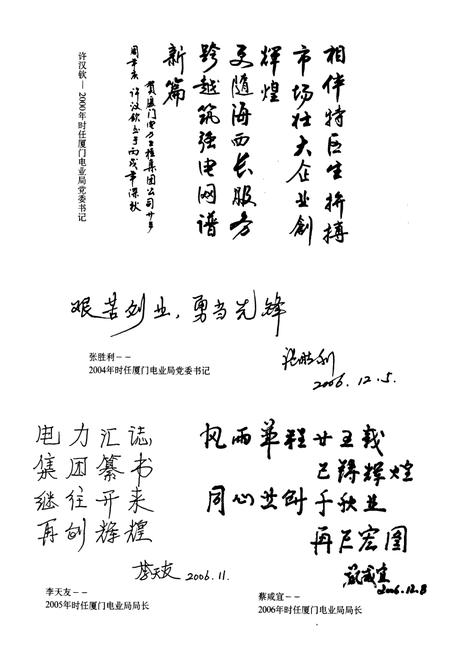 相伴特区生拚搏
市场壮大企业创
辉煌
更随海西长服务
跨越筑强电网谱
新篇
贺厦门电力工程集团公司廿
周年庆 许汉钦书于丙戌年深秋
许汉钦——2000年时任厦门电业局党委书记
艰苦创业，勇当先锋
张胜利
2006.12.5.
张胜利——
2004年时任厦门电业局党委书记
电力汇志
集团纂书
继往开来
再创辉煌
李天友 2006.11.
李天友——
2005年时任厦门电业局局长
风雨华程廿五载
已铸辉煌
同心共创千秋业
再展宏图
蔡咸宜 2006.12.8
蔡咸宜——
2006年时任厦门电业局局长